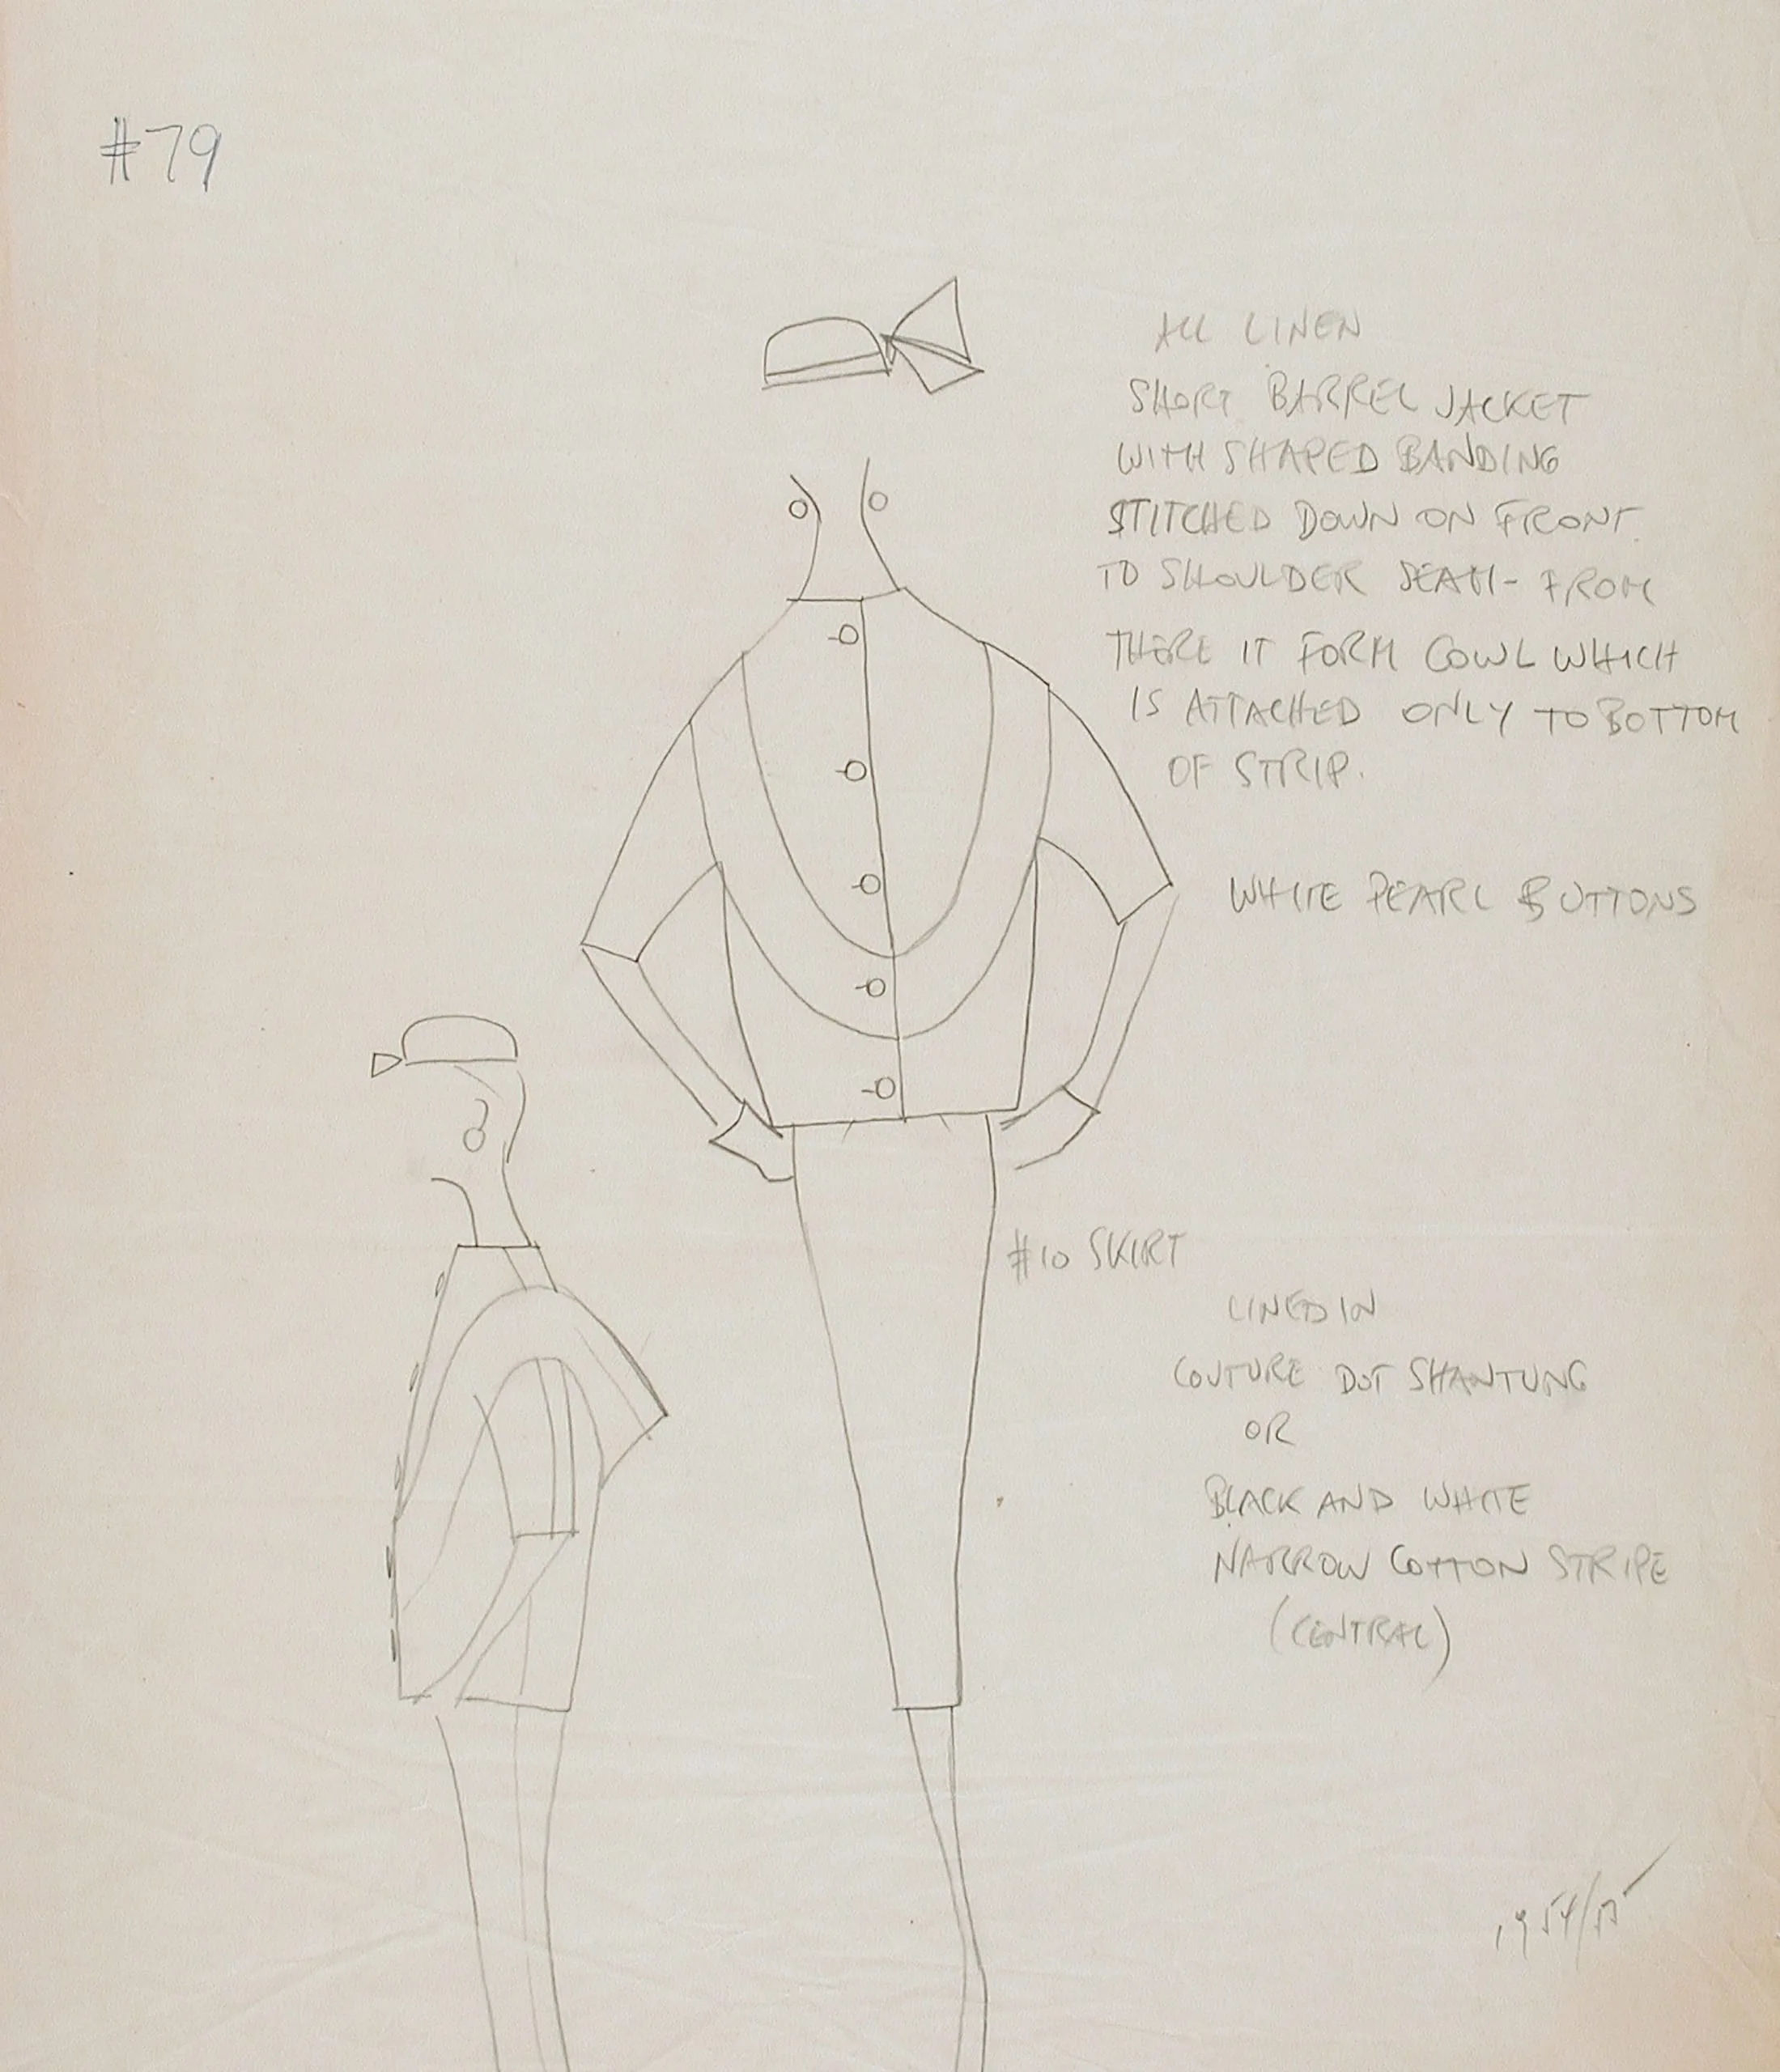 #79
ALL LINEN
SHORT BARREL JACKET
WITH SHAPED BANDING
STITCHED DOWN ON FRONT
TO SHOULDER SEAM - FROM
THERE IT FORM COWL WHICH
IS ATTACHED ONLY TO BOTTOM
OF STRIP.
WHITE PEARL BUTTONS
#10 SKIRT
LINED IN
COUTURE DOT SHANTUNG
OR
BLACK AND WHITE
NARROW COTTON STRIPE
(CENTRAL)
1954/55